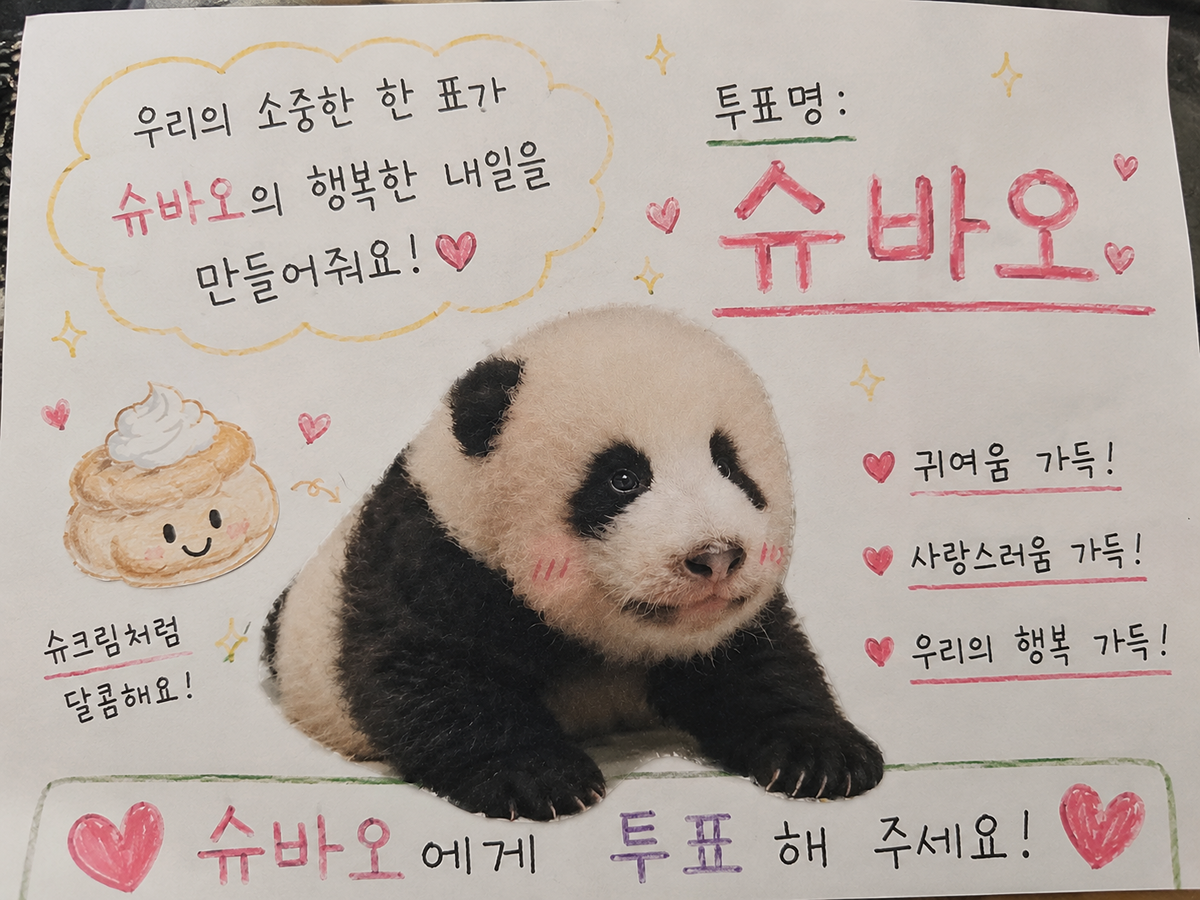 우리의 소중한 한 표가
슈바오의 행복한 내일을
만들어줘요!
투표명:
슈바오
귀여움 가득!
사랑스러움 가득!
우리의 행복 가득!
슈크림처럼
달콤해요!
슈바오에게 투표 해 주세요!